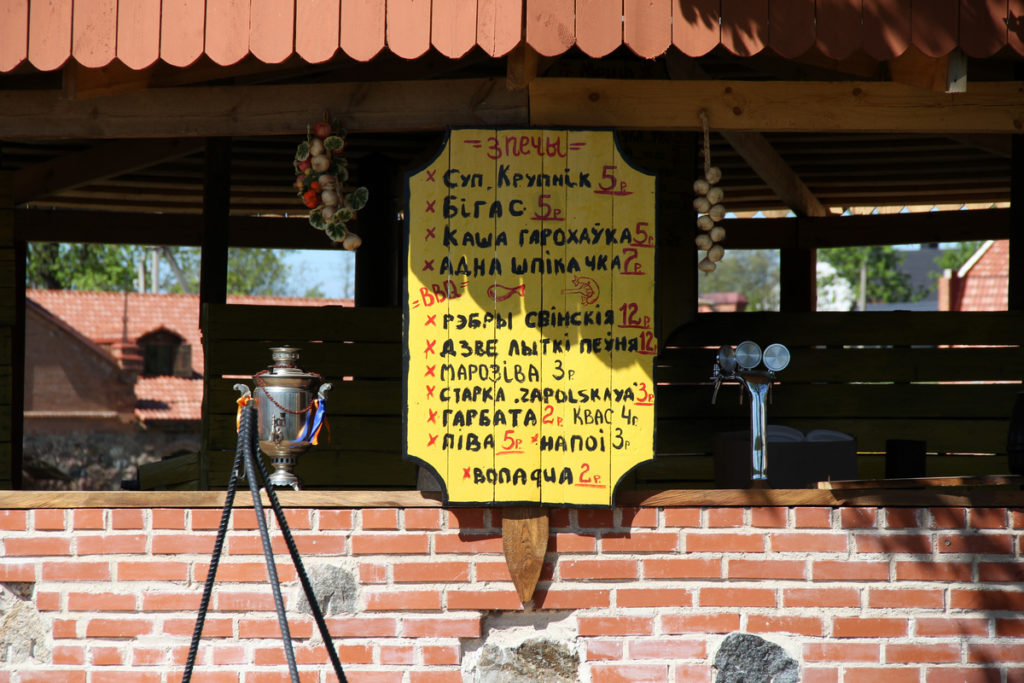 З печы
Суп. Крупнік 5р.
Бігас 5р.
Каша гарохаўка 5р.
Адна шпікачка 2р.
ВВQ
Рэбры свінскія 12р.
Дзве лыткі пеўня 12
Марозіва 3р.
Старка „Zapolskaya" 3р.
Гарбата 2р. Квас 4р.
Піва 5р. Напоі 3р.
Вопадца 2р.